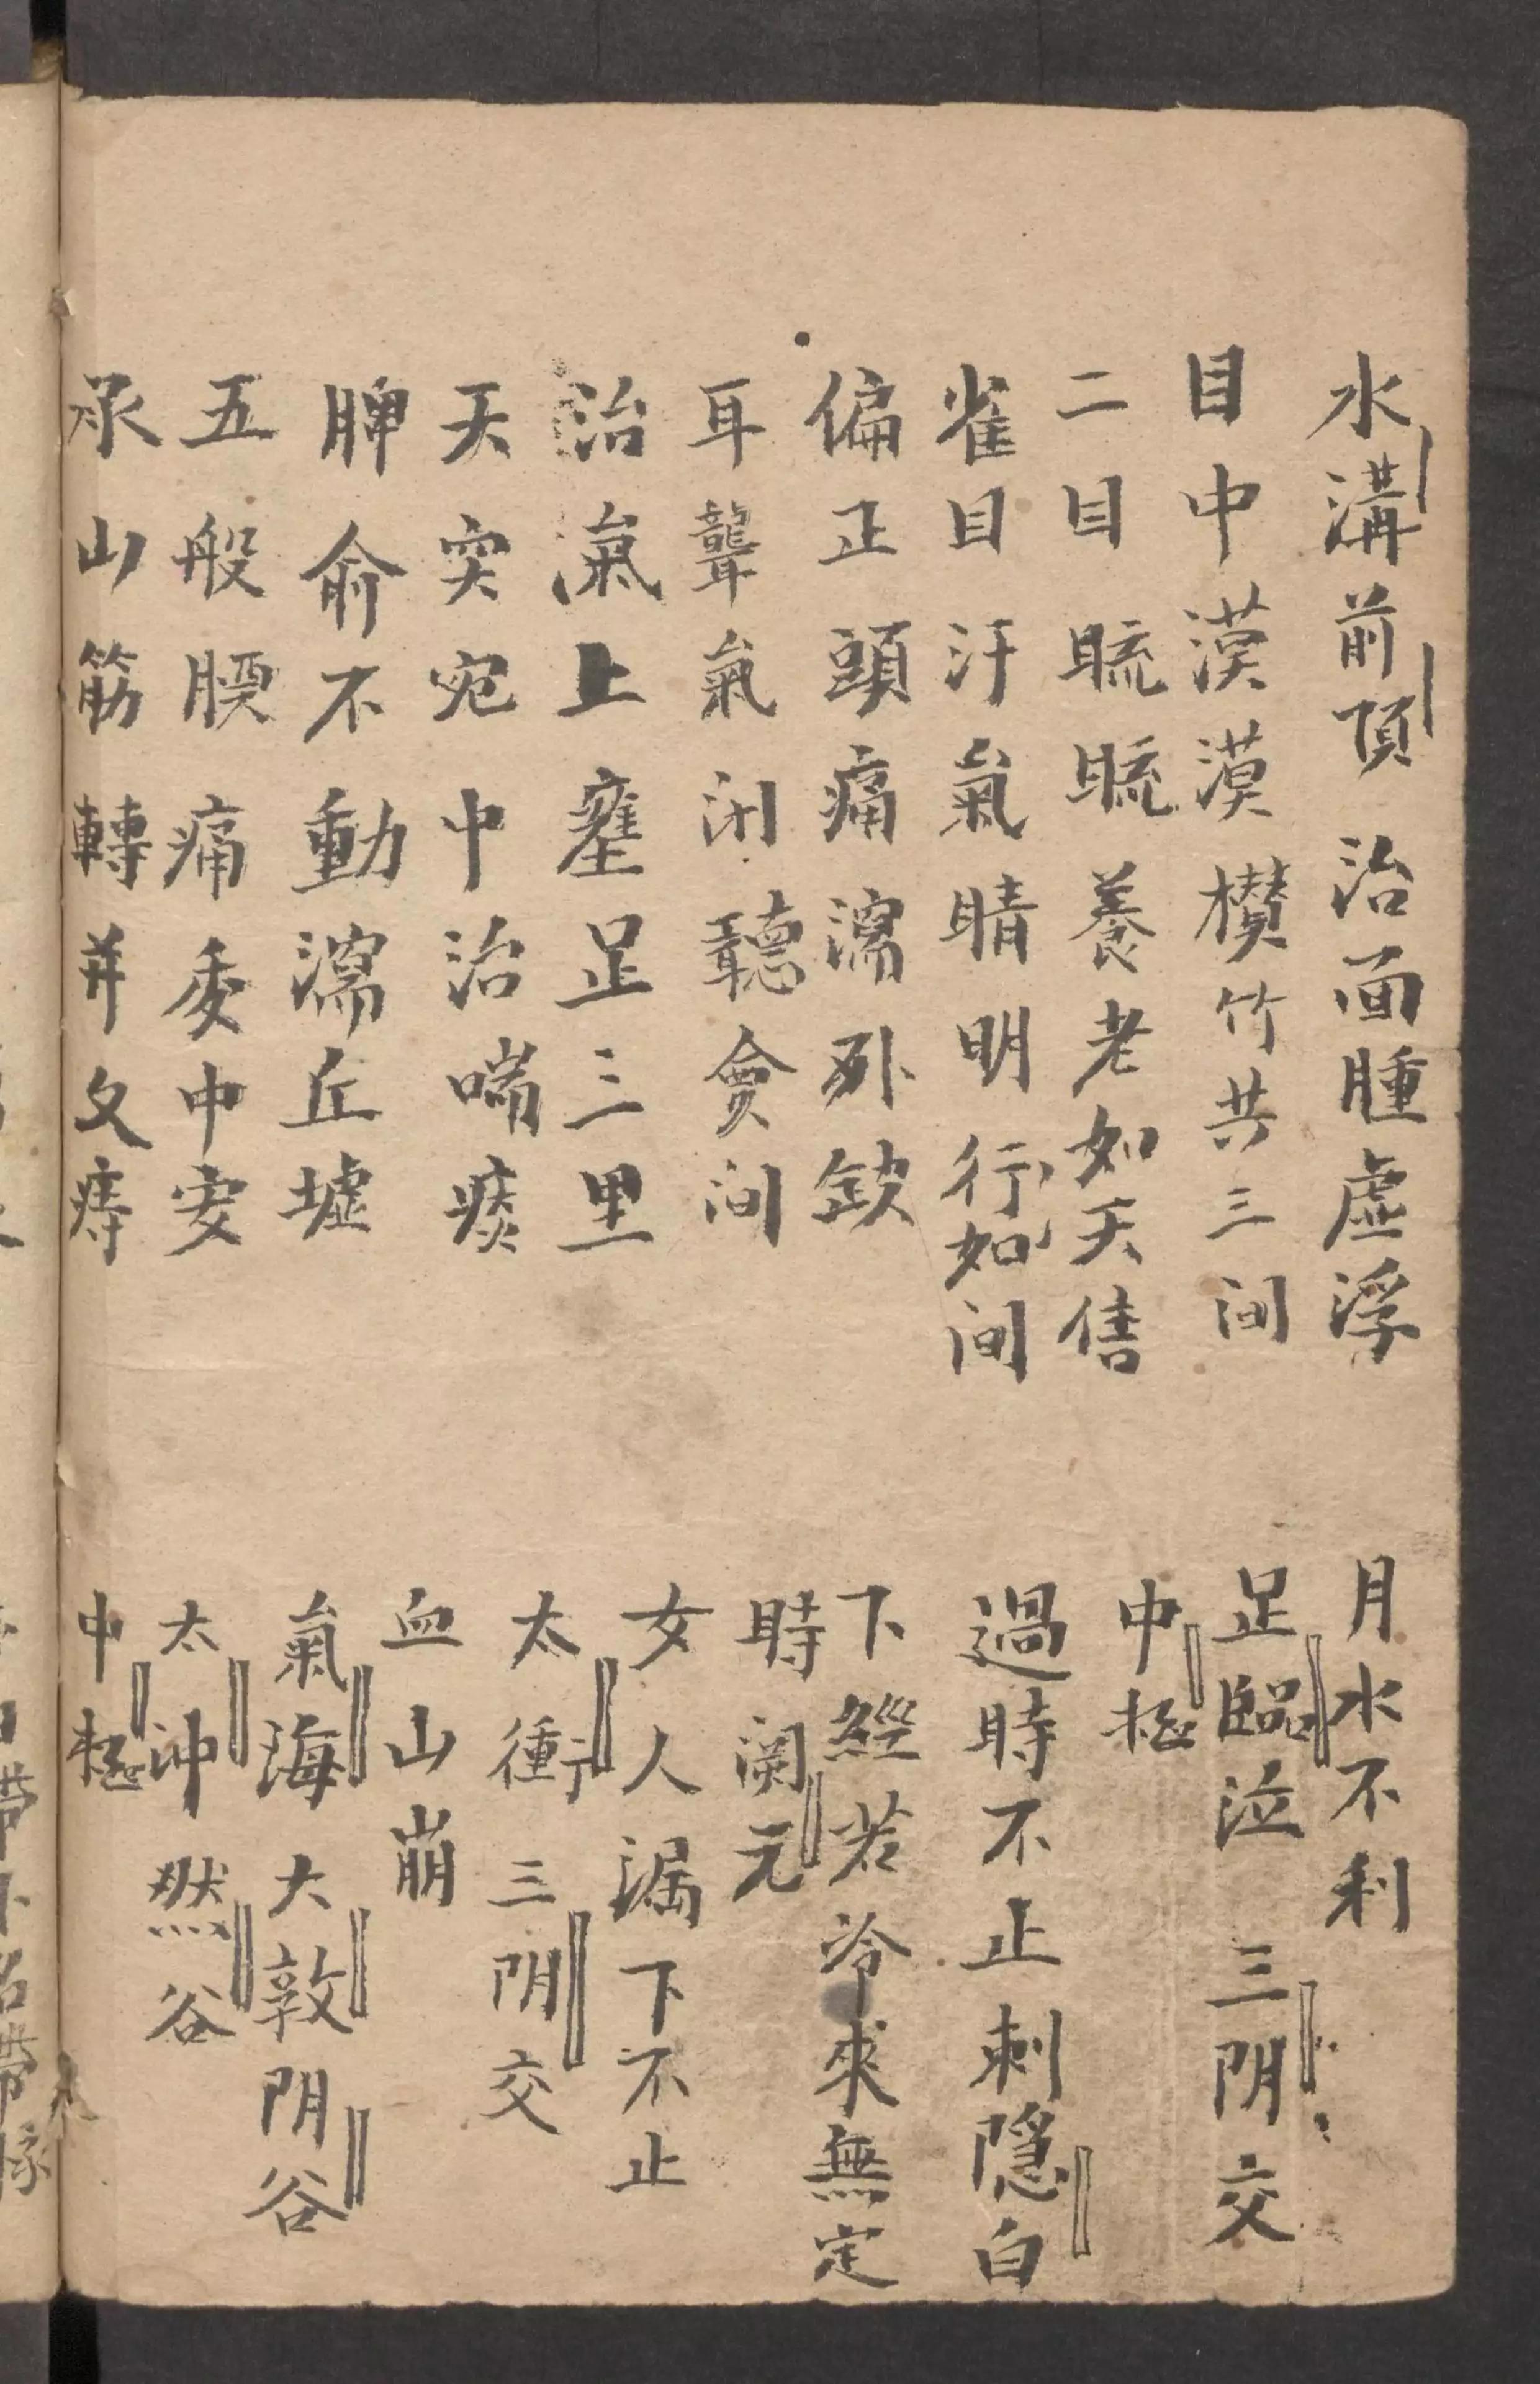 水溝前頂治面腫虛浮
目中漠漠欑竹共三间
二目䀮䀮養老如天
雀目汗氣睛明行如间
偏正頭痛瀉列缺
耳聾氣闭聽會间
治氣上壅足三里
天突宛中治喘痰
脾俞不動瀉丘墟
五般腰痛委中安
承山筋轉并久痔
月水不利
足臨泣三阴交
中極
過時不止刺隠白
下經若冷來無定
時関元
女人漏下不止
太衝三阴交
血山崩
氣海大敦阴谷
太冲然谷
中極